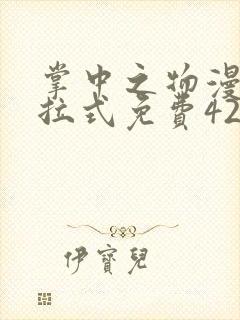 掌中之物漫
拉式免费42
伊寶兒